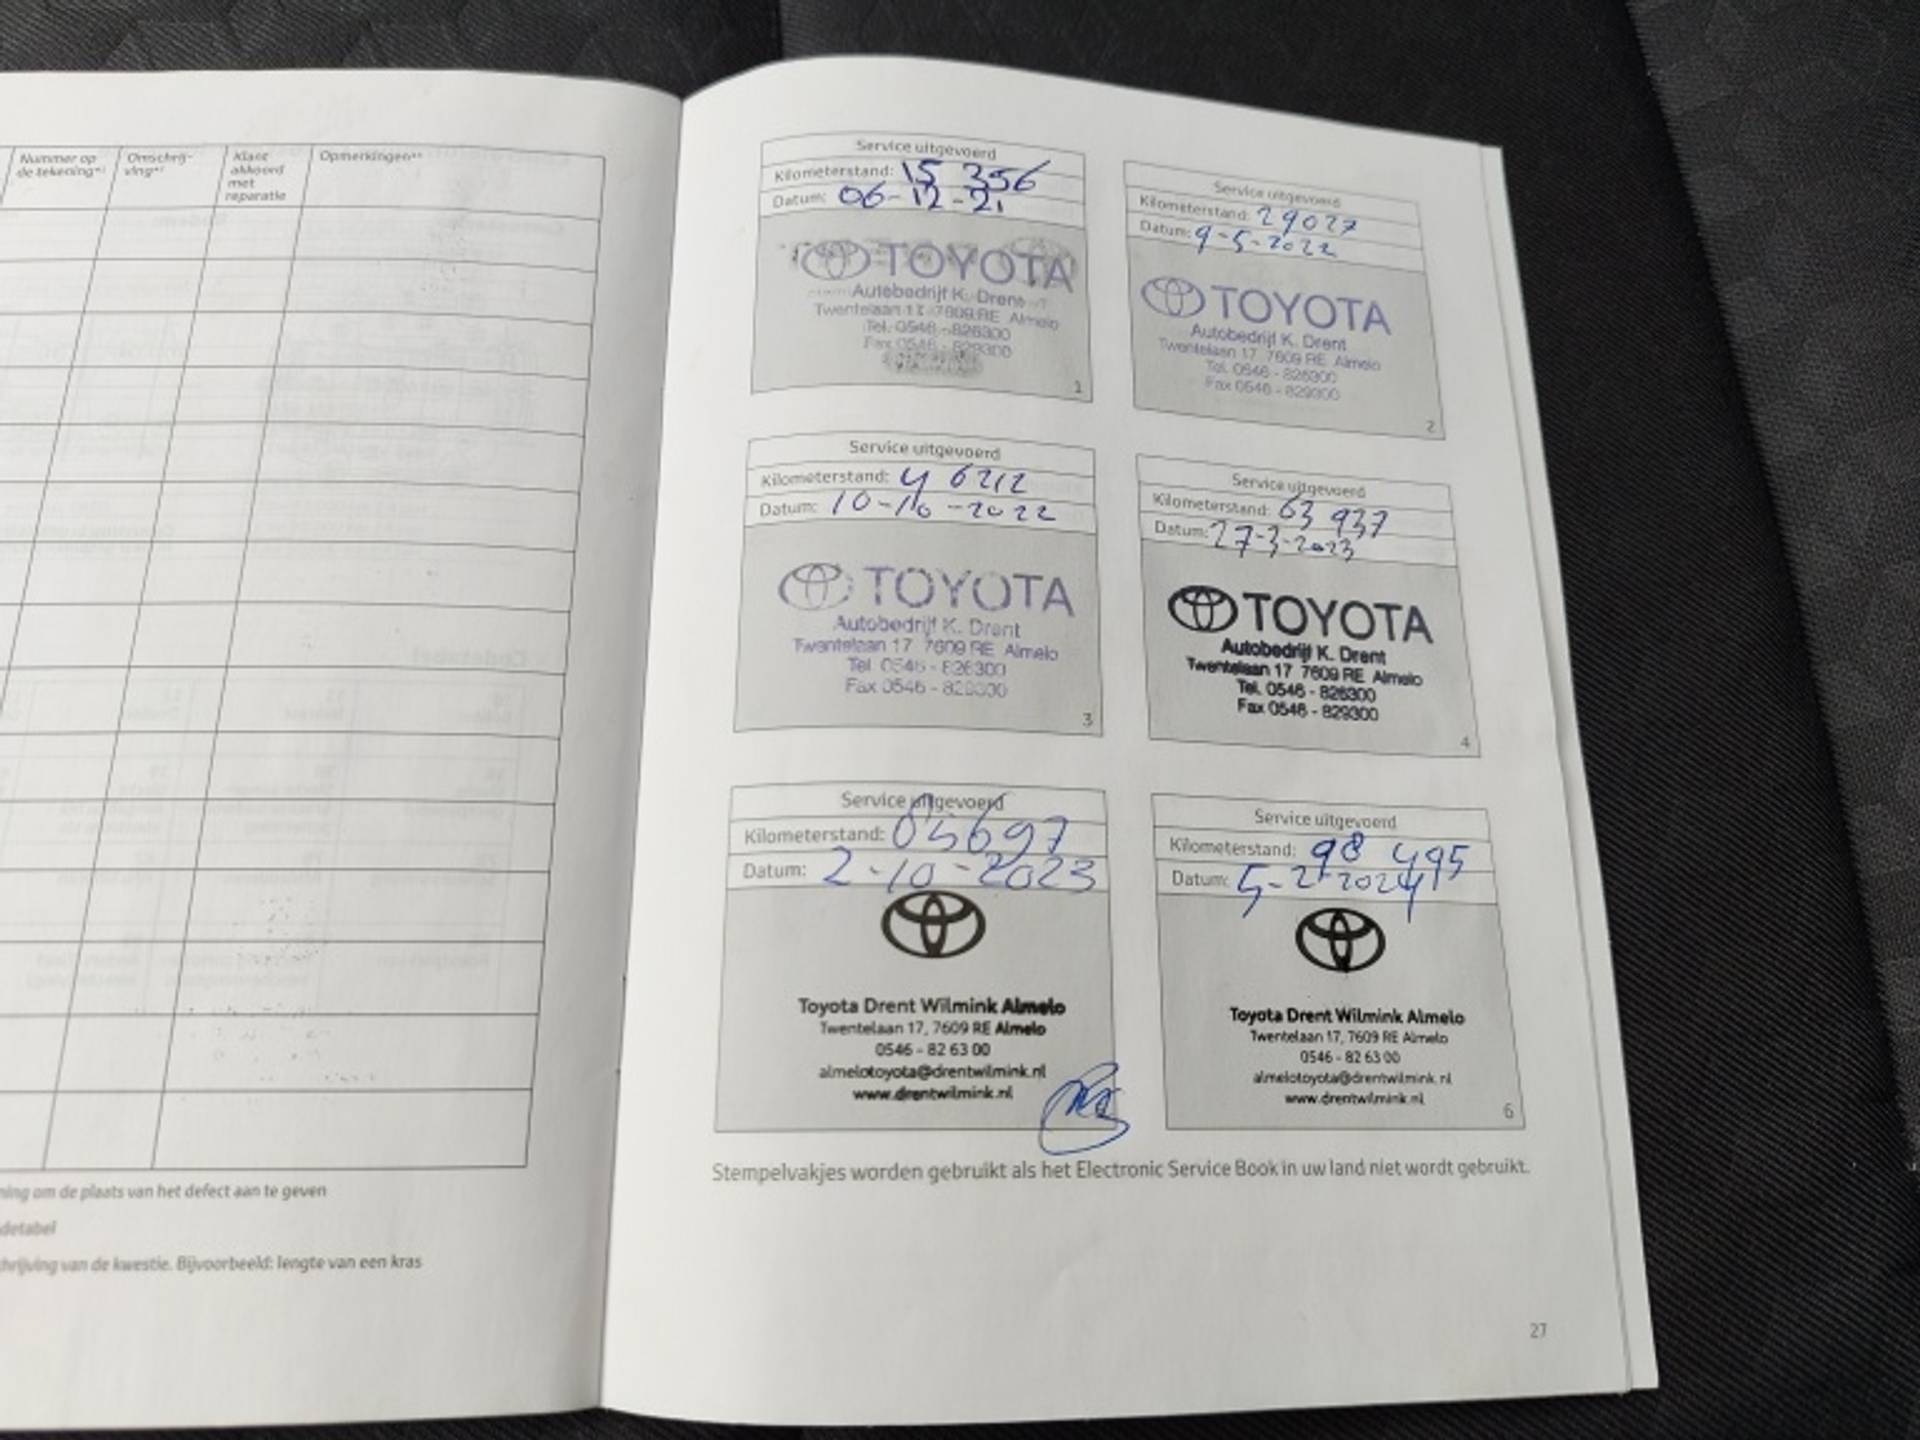 Nummer op
de tekening*¹
Omschrij-
ving*²
Klant
akkoord
met
reparatie
Opmerkingen**
ning om de plaats van het defect aan te geven
detabel
hrijving van de kwestie. Bijvoorbeeld: lengte van een kras
Service uitgevoerd
Kilometerstand: 15 356
Datum: 06-12-21
TOYOTA
Autobedrijf K. Drent
Twentelaan 17 7609 RE Almelo
Tel. 0546 - 826300
Fax 0546 - 829300
1
Service uitgevoerd
Kilometerstand: 29027
Datum: 9-5-2022
TOYOTA
Autobedrijf K. Drent
Twentelaan 17 7609 RE Almelo
Tel. 0546 - 826300
Fax 0546 - 829300
2
Service uitgevoerd
Kilometerstand: 46212
Datum: 10-10-2022
TOYOTA
Autobedrijf K. Drent
Twentelaan 17 7609 RE Almelo
Tel. 0546 - 826300
Fax 0546 - 829300
3
Service uitgevoerd
Kilometerstand: 63 937
Datum: 27-3-2023
TOYOTA
Autobedrijf K. Drent
Twentelaan 17 7609 RE Almelo
Tel. 0546 - 826300
Fax 0546 - 829300
4
Service uitgevoerd
Kilometerstand:
Datum: 2-10-2023
Toyota Drent Wilmink Almelo
Twentelaan 17, 7609 RE Almelo
0546 - 82 63 00
almelotoyota@drentwilmink.nl
www.drentwilmink.nl
Service uitgevoerd
Kilometerstand: 98 495
Datum: 5-2-2024
Toyota Drent Wilmink Almelo
Twentelaan 17, 7609 RE Almelo
0546 - 82 63 00
almelotoyota@drentwilmink.nl
www.drentwilmink.nl
6
Stempelvakjes worden gebruikt als het Electronic Service Book in uw land niet wordt gebruikt.
27